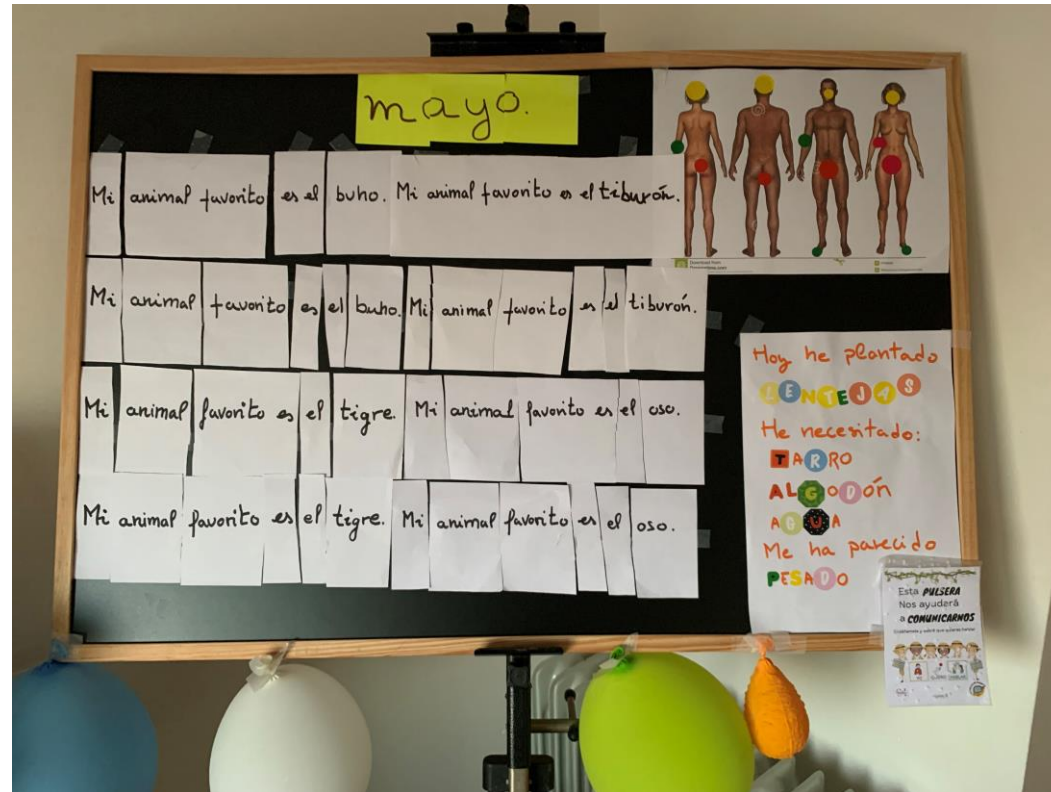 mayo.
Mi animal favorito es el buho. Mi animal favorito es el tiburón.
Mi animal favorito es el buho. Mi animal favorito es el tiburón.
Mi animal favorito es el tigre. Mi animal favorito es el oso.
Mi animal favorito es el tigre. Mi animal favorito es el oso.
Hoy he plantado
LENTEJAS
He necesitado:
TARRO
ALGODÓN
AGUA
Me ha parecido
PESADO
Esta PULSERA
Nos ayudará
a COMUNICARNOS